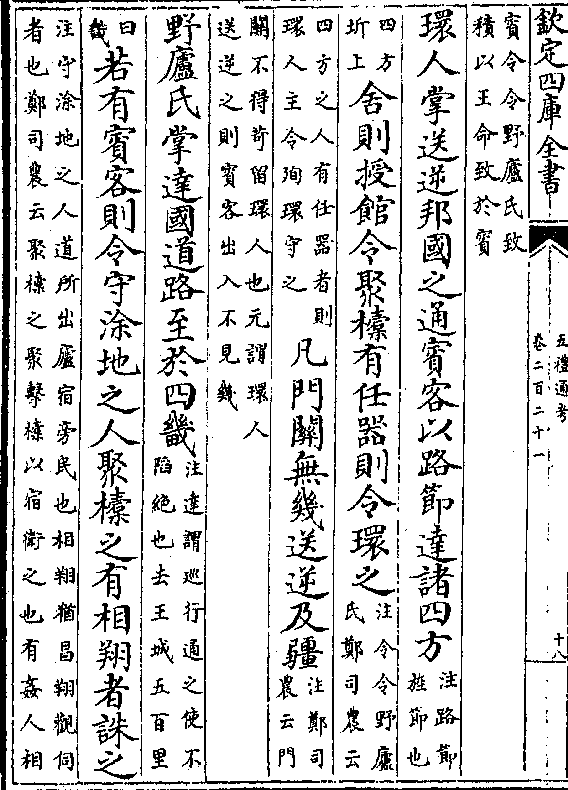 欽定四庫全書
五禮通考
卷二百二十一
十八
賓令令野廬氏致
積以王命致於賓
環人掌送逆邦國之通賓客以路節達諸四方
注路節
旌節也
四方
圻上
舍則授館令聚欜有任器則令環之
注令令野廬
氏鄭司農云
四方之人有任器者則
環人主令殉環守之
凡門關無幾送逆及疆
注鄭司
農云門
關不得苛留環人也元謂環人
送逆之則賓客出入不見幾
野廬氏掌達國道路至於四畿
注達謂巡行通之使不
陷絶也去王城五百里
曰
畿
若有賓客則令守涂地之人聚欜之有相翔者誅之
注守涂地之人道所出廬宿旁民也相翔猶昌翔觀伺
者也鄭司農云聚欜之聚擊欜以宿衛之也有姦人相